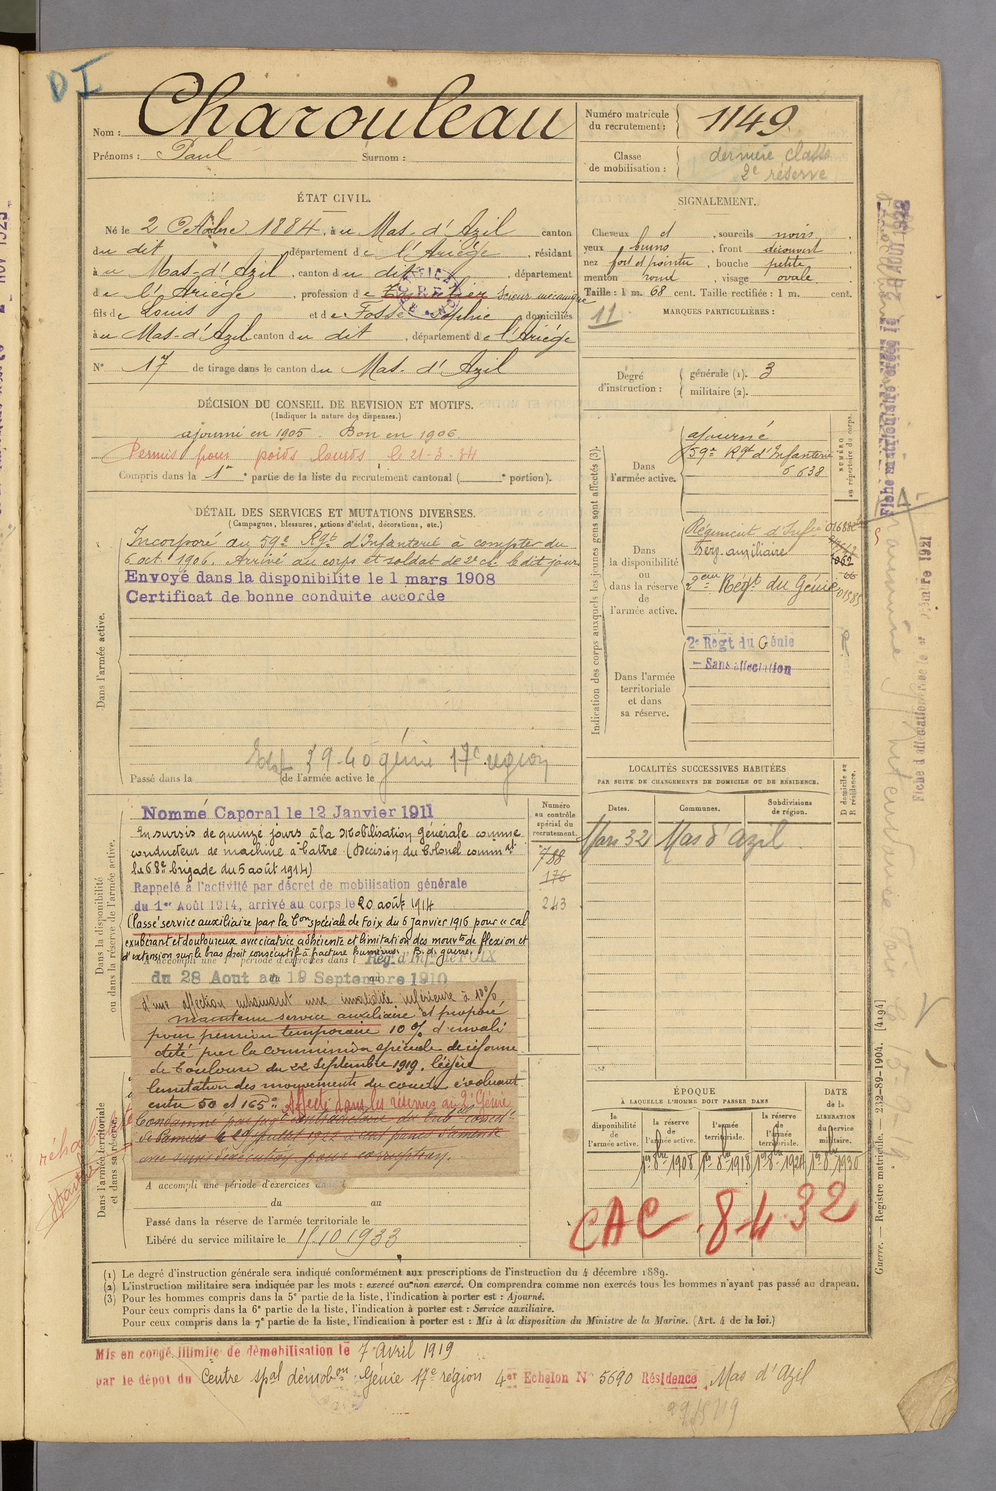 DI
Nom : Charouleau
Prénoms : Paul Surnom :
Numéro matricule du recrutement : 1149
Classe de mobilisation : dernière classe 2e réserve
ÉTAT CIVIL.
Né le 2 Octobre 1884, à u Mas-d'Azil canton
du dit département de l'Ariège, résidant
à u Mas-d'Azil, canton du dit, département
de l'Ariège, profession de Scieur mécanique
fils de Louis et de Fosse Sophie domiciliés
à u Mas-d'Azil canton du dit, département de l'Ariège
N° 17 de tirage dans le canton du Mas-d'Azil
SIGNALEMENT.
Cheveux et , sourcils noirs
yeux bruns , front découvert
nez fort et pointu , bouche petite
menton rond , visage ovale
Taille : 1 m. 68 cent. Taille rectifiée : 1 m. cent.
11
MARQUES PARTICULIÈRES :
Degré d'instruction : générale (1). 3
militaire (2).
DÉCISION DU CONSEIL DE REVISION ET MOTIFS.
(Indiquer la nature des dispenses.)
ajourné en 1905. Bon en 1906
Permis pour poids lourds le 21-3-34
Compris dans la 1re partie de la liste du recrutement cantonal ( e portion).
DÉTAIL DES SERVICES ET MUTATIONS DIVERSES.
(Campagnes, blessures, actions d'éclat, décorations, etc.)
Dans l'armée active.
Incorporé au 59e Rgt d'Infanterie à compter du
6 oct. 1906. Arrivé au corps et soldat de 2e cl. le dit jour
Envoyé dans la disponibilite le 1 mars 1908
Certificat de bonne conduite accorde
39-40 génie 17e région
Passé dans la de l'armée active le
Indication des corps auxquels les jeunes gens sont affectés (3).
NUMÉRO au répertoire du corps.
Dans l'armée active.
ajourné
59e Rgt d'Infanterie
6638
Dans la disponibilité ou dans la réserve de l'armée active.
Régiment d'Infie
Serv. auxiliaire
2eme Régt du Génie 01585
Dans l'armée territoriale et dans sa réserve.
2e Régt du Génie
- Sans affectation
R
LOCALITÉS SUCCESSIVES HABITÉES
PAR SUITE DE CHANGEMENTS DE DOMICILE OU DE RÉSIDENCE.
Dates. Communes. Subdivisions de région. D domicile ou R résidence.
Mars 32 Mas d'azil
Dans la disponibilité ou dans la réserve de l'armée active.
Numéro au contrôle spécial du recrutement.
788
176
243
Nommé Caporal le 12 Janvier 1911
En sursis de quinze jours à la Mobilisation Générale comme
conducteur de machine à battre (Décision du Colonel commt
la 68e brigade du 5 août 1914)
Rappelé à l'activité par décret de mobilisation générale
du 1er Août 1914, arrivé au corps le 20 août 1914
Classé service auxiliaire par la Con spéciale de Foix du 6 janvier 1916 pour « cal
exubérant et douloureux avec cicatrice adhérente et limitation des mouvts de flexion et
d'extension sur le bras droit consécutif à fracture humérus. B. de guerre,
A accompli une période d'exercices dans l Rég. d'Infie FOIX
du 28 Aout au 19 Septembre 1910
d'une affection entrainant une invalidité inférieure à 10%,
maintenu service auxiliaire et proposé
pour pension temporaire 10 % d'invali
dité par la commission spéciale de réforme
de Toulouse du 22 septembre 1919. Légère
limitation des mouvements du coude évoluant
entre 50 et 165°. Affecté dans les réserves au 2e Génie
Dans l'armée territoriale et dans sa réserve.
A accompli une période d'exercices
du au
Passé dans la réserve de l'armée territoriale le
Libéré du service militaire le 15.10.1933
ÉPOQUE
À LAQUELLE L'HOMME DOIT PASSER DANS
la disponibilité de l'armée active. la réserve de l'armée active. l'armée territoriale. la réserve de l'armée territoriale.
DATE de la LIBÉRATION du service militaire.
1er 8bre 1908 1er 8bre 1918 1er 8bre 1924 1er 8 1930
CAC. 8-4-32
(1) Le degré d'instruction générale sera indiqué conformément aux prescriptions de l'instruction du 4 décembre 1889.
(2) L'instruction militaire sera indiquée par les mots : exercé ou non exercé. On comprendra comme non exercés tous les hommes n'ayant pas passé au drapeau.
(3) Pour les hommes compris dans la 5e partie de la liste, l'indication à porter est : Ajourné.
Pour ceux compris dans la 6e partie de la liste, l'indication à porter est : Service auxiliaire.
Pour ceux compris dans la 7e partie de la liste, l'indication à porter est : Mis à la disposition du Ministre de la Marine. (Art. 4 de la loi.)
Mis en congé illimité de démobilisation le 7 Avril 1919
par le dépot du Centre spal démobon Génie 17e région 4er Echelon N° 5690 Résidence Mas d'Azil
Guerre. — Registre matricule. 232-89-1904. [4194]